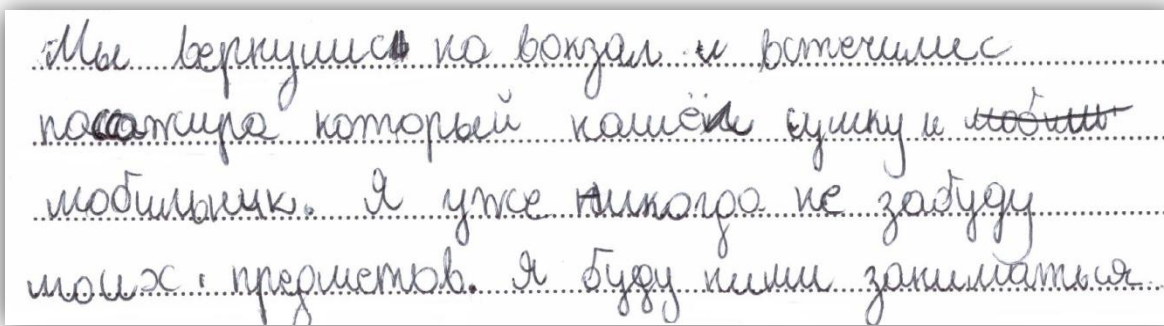 Мы вернулись на вокзал и встечилис
пассажира который нашёл сумку и мобиль
мобильник. Я уже никогда не забуду
моих предметов. Я буду ними заниматься.